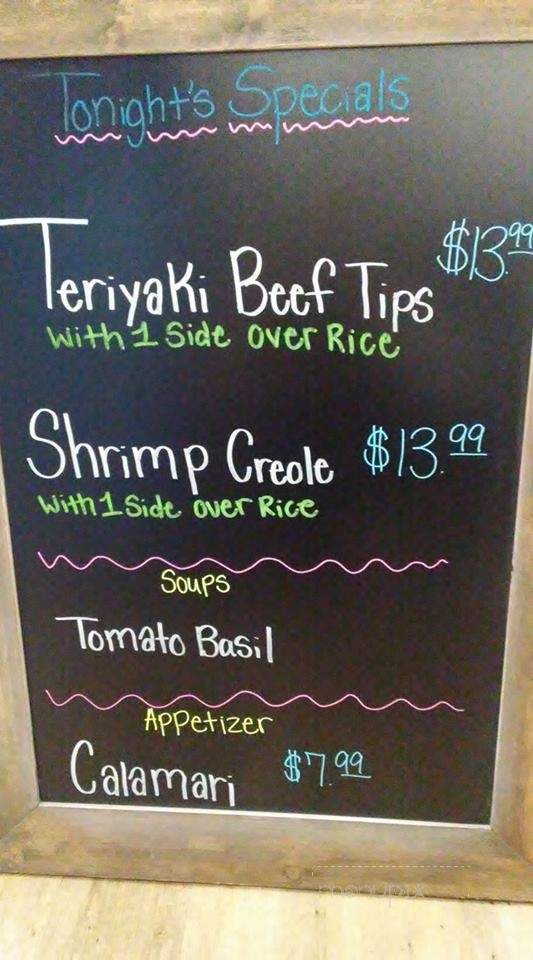 Tonight's Specials
Teriyaki Beef Tips $13.99
with 1 Side over Rice
Shrimp Creole $13.99
with 1 Side over Rice
Soups
Tomato Basil
Appetizer
Calamari $7.99